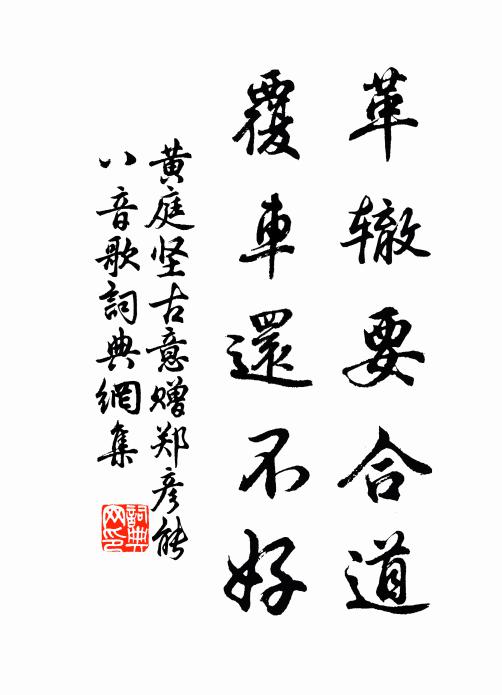 革辙要合道
覆車還不好
黄庭坚古意赠郑彦能
八音歌詞典網集
詞典网印